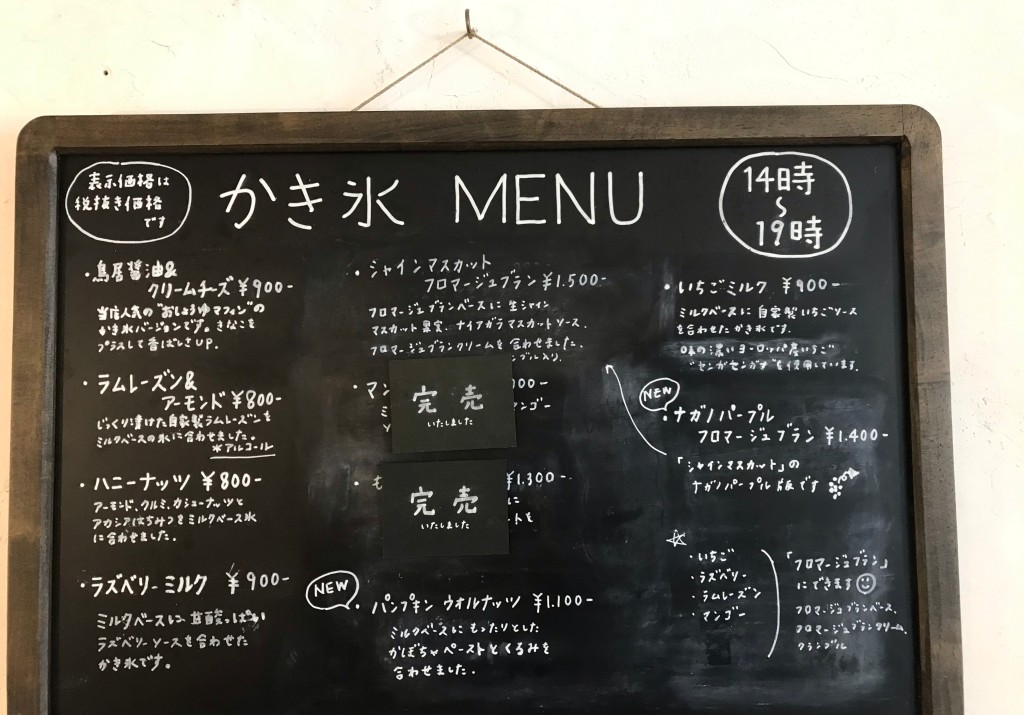 表示価格は
税抜き価格
です
かき氷 MENU
14時
〜
19時
・鳥居醤油&
クリームチーズ ¥900-
当店人気の"おしょうゆマフィン"の
かき氷バージョンです。きなこを
プラスして香ばしさUP.
・ラムレーズン&
アーモンド ¥800-
じっくり漬けた自家製ラムレーズンを
ミルクベースの氷に合わせました。
*アルコール
・ハニーナッツ ¥800-
アーモンド、クルミ、カシューナッツと
アカシアはちみつをミルクベース氷
に合わせました。
・ラズベリーミルク ¥900-
ミルクベースに甘酸っぱい
ラズベリーソースを合わせた
かき氷です。
・シャインマスカット
フロマージュブラン ¥1.500-
フロマージュブランベースに生シャイン
マスカット果実、ナイアガラマスカットソース、
フロマージュブランクリームを合わせました。
ンブル入り.
・マン
00-
ンゴー
完売
いたしました
・も
¥1.300-
に
ートを
完売
いたしました
NEW
・パンプキン ウォルナッツ ¥1.100-
ミルクベースにもったりとした
かぼちゃペーストとくるみを
合わせました.
・いちごミルク ¥900-
ミルクベースに自家製いちごソース
を合わせたかき氷です.
味の濃いヨーロッパ産いちご
"センガセンガナ"を使用しています.
NEW
・ナガノパープル
フロマージュブラン ¥1.400-
「シャインマスカット」の
ナガノパープル版です
☆
・いちご
・ラズベリー
・ラムレーズン
・マンゴー
「フロマージュブラン」
にできます
フロマージュブランベース、
フロマージュブランクリーム、
クランブル